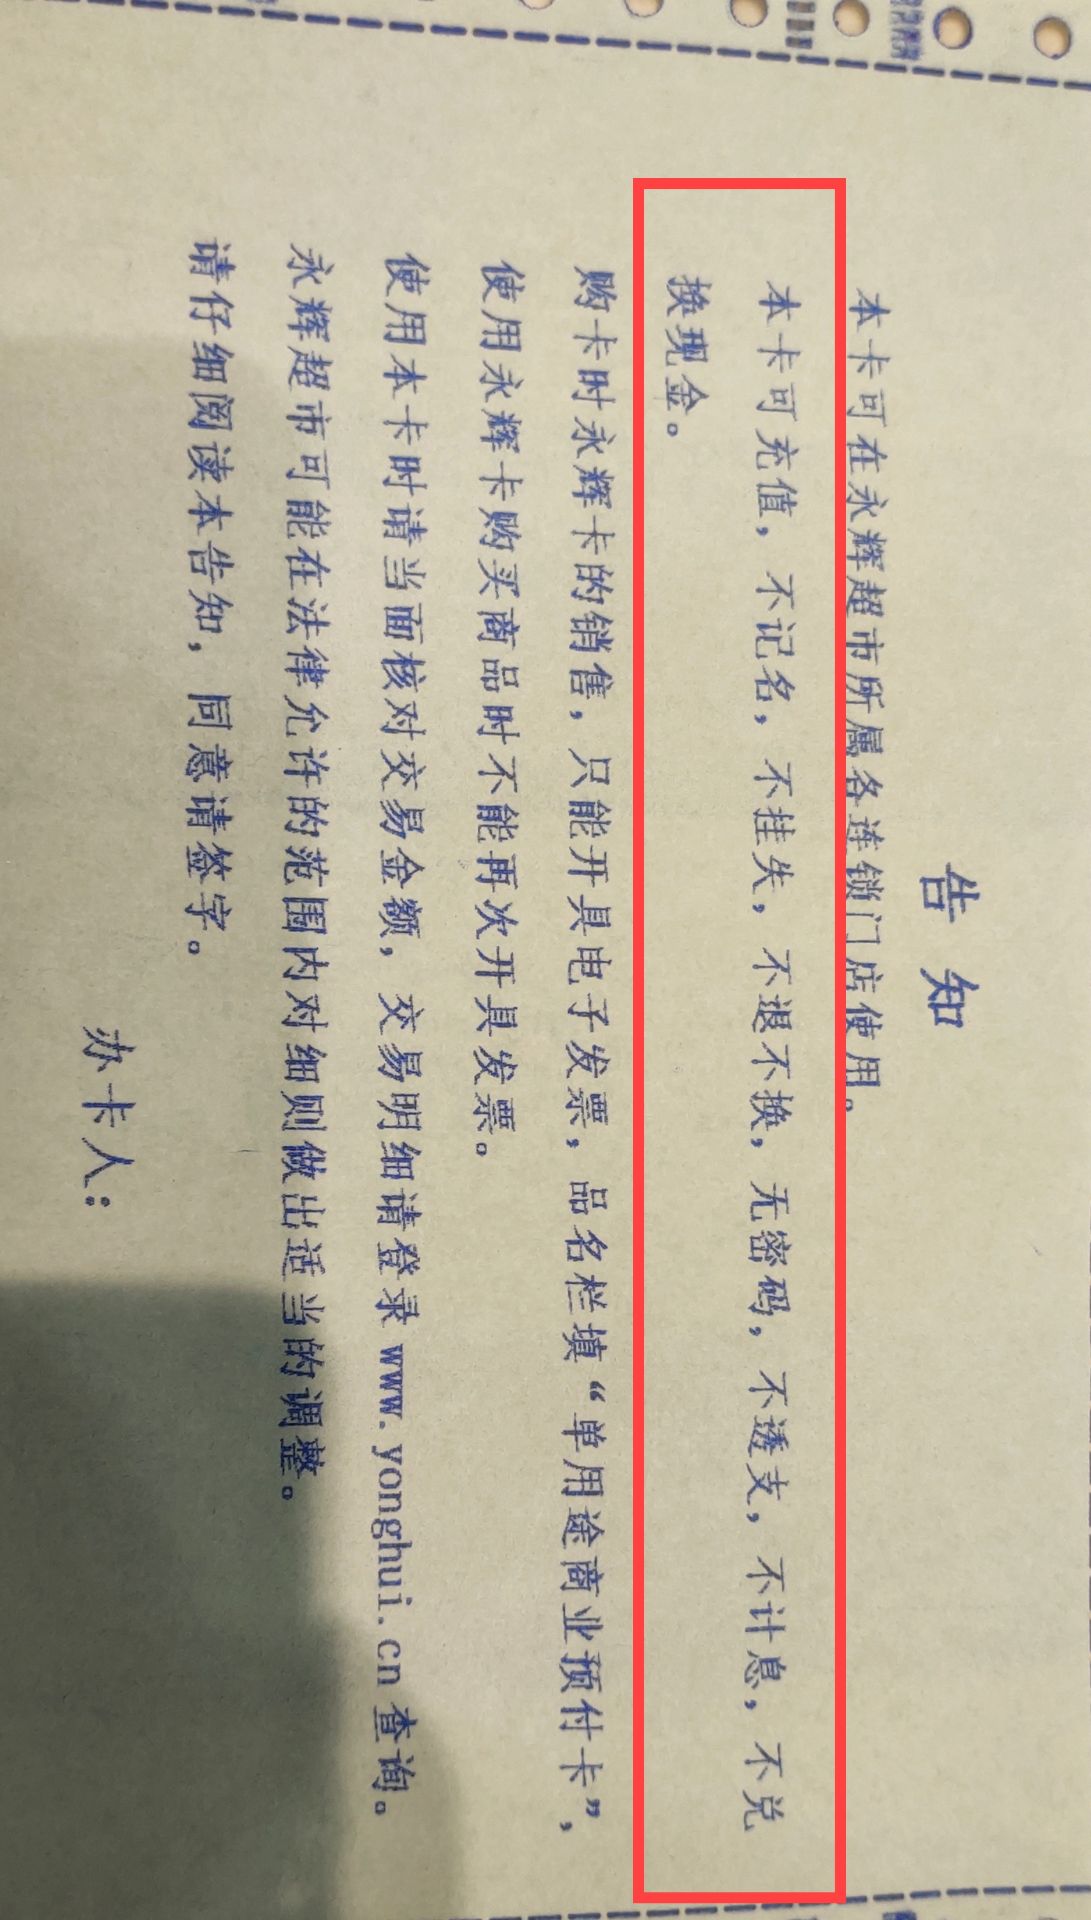 告 知
本卡可在永辉超市所属各连锁门店使用。
本卡可充值，不记名，不挂失，不退不换，无密码，不透支，不计息，不兑
换现金。
购卡时永辉卡的销售，只能开具电子发票，品名栏填“单用途商业预付卡”，
使用永辉卡购买商品时不能再次开具发票。
使用本卡时请当面核对交易金额，交易明细请登录www.yonghui.cn查询。
永辉超市可能在法律允许的范围内对细则做出适当的调整。
请仔细阅读本告知，同意请签字。
办卡人：